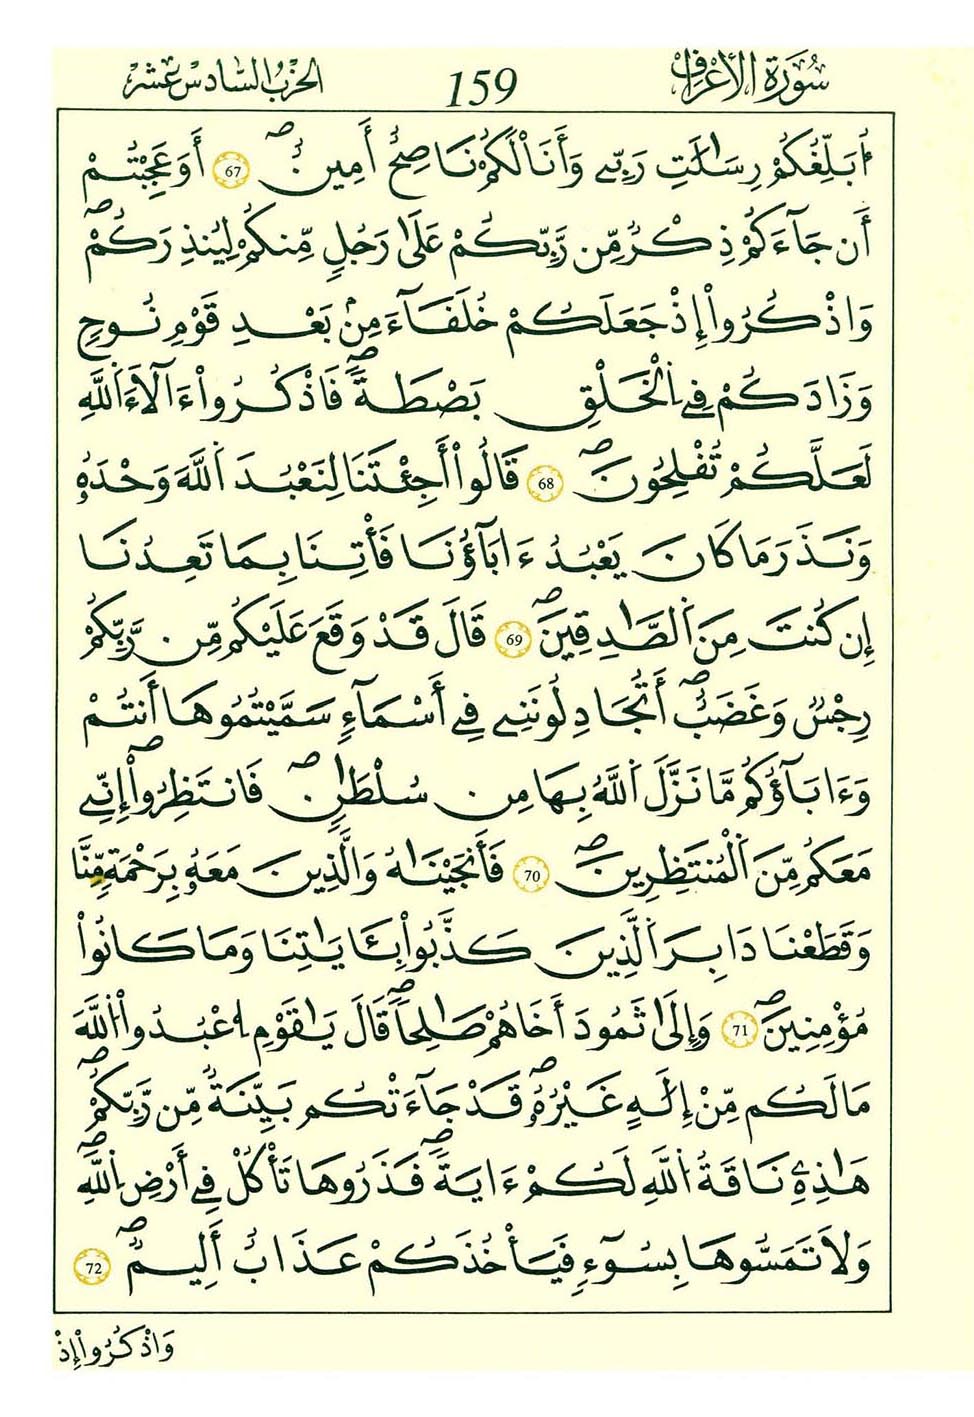 سُورَةُ الأَعْرَافِ 159 الحِزْبُ السَّادِسَ عَشَرَ
أُبَلِّغُكُمْ رِسَٰلَٰتِ رَبِّے وَأَنَا لَكُمْ نَاصِحٌ أَمِينٌۖ 67 أَوَعَجِبْتُمْ
أَن جَآءَكُمْ ذِكْرٌ مِّن رَّبِّكُمْ عَلَىٰ رَجُلٍ مِّنكُمْ لِيُنذِرَكُمْۖ
وَاذْكُرُوٓاْ إِذْ جَعَلَكُمْ خُلَفَآءَ مِنۢ بَعْدِ قَوْمِ نُوحٍ
وَزَادَكُمْ فِے اِلْخَلْقِ بَصْۜطَةٗۖ فَاذْكُرُوٓاْ ءَالَآءَ اَللَّهِ
لَعَلَّكُمْ تُفْلِحُونَۖ 68 قَالُوٓاْ أَجِئْتَنَا لِنَعْبُدَ اَللَّهَ وَحْدَهُۥ
وَنَذَرَ مَا كَانَ يَعْبُدُ ءَابَآؤُنَا فَأْتِنَا بِمَا تَعِدُنَآ
إِن كُنتَ مِنَ اَلصَّٰدِقِينَۖ 69 قَالَ قَدْ وَقَعَ عَلَيْكُم مِّن رَّبِّكُمْ
رِجْسٌ وَغَضَبٌۖ أَتُجَٰدِلُونَنِے فِےٓ أَسْمَآءٍ سَمَّيْتُمُوهَآ أَنتُمْ
وَءَابَآؤُكُم مَّا نَزَّلَ اَللَّهُ بِهَا مِن سُلْطَٰنٍۖ فَانتَظِرُوٓاْۖ إِنِّے
مَعَكُم مِّنَ اَلْمُنتَظِرِينَۖ 70 فَأَنجَيْنَٰهُ وَالَّذِينَ مَعَهُۥ بِرَحْمَةٍ مِّنَّا
وَقَطَعْنَا دَابِرَ اَلَّذِينَ كَذَّبُواْ بِـَٔايَٰتِنَا وَمَا كَانُواْ
مُؤْمِنِينَۖ 71 وَإِلَىٰ ثَمُودَ أَخَاهُمْ صَٰلِحاٗۖ قَالَ يَٰقَوْمِ اِ۟عْبُدُواْ اُللَّهَ
مَا لَكُم مِّنْ إِلَٰهٍ غَيْرُهُۥۖ قَدْ جَآءَتْكُم بَيِّنَةٌ مِّن رَّبِّكُمْۖ
هَٰذِهِۦ نَاقَةُ اُللَّهِ لَكُمْ ءَايَةٗۖ فَذَرُوهَا تَأْكُلْ فِےٓ أَرْضِ اِللَّهِۖ
وَلَا تَمَسُّوهَا بِسُوٓءٍ فَيَأْخُذَكُمْ عَذَابٌ أَلِيمٌۖ 72
وَاذْكُرُوٓاْ إِذْ